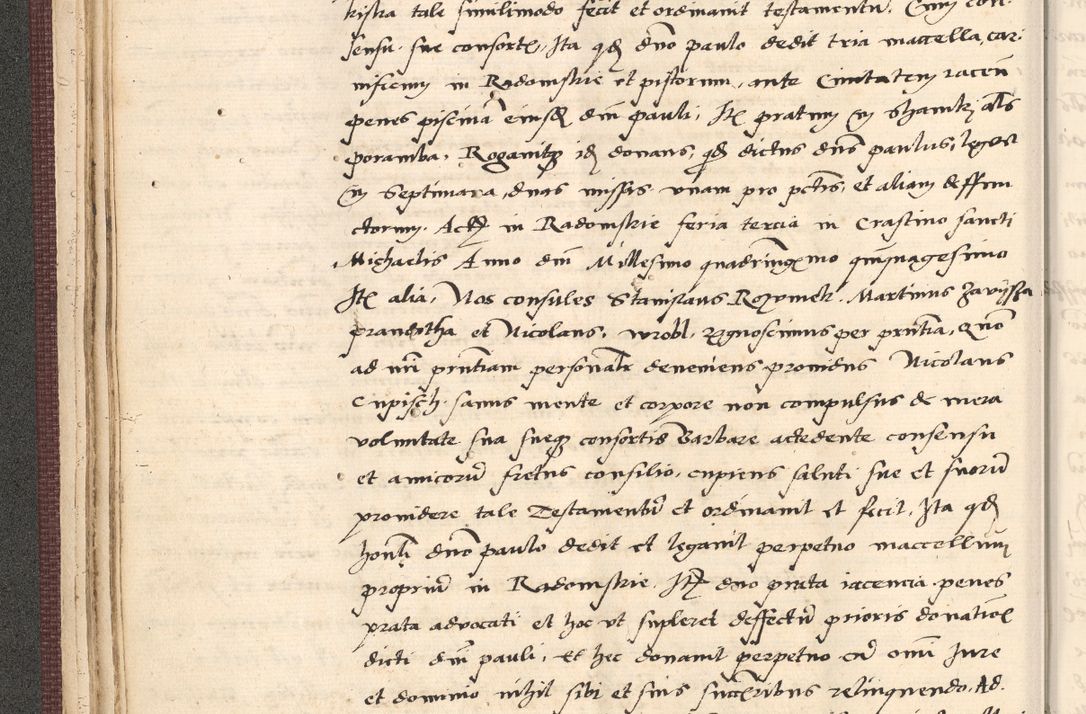 kistra tale similimodo fecit et ordinavit testamentũ. Cum con-
sensu sue consortꝭ, Ita qđ dño paulo dedit tria maccella, car
nificum in Radomskie et pistorum, ante Civitatem iacen
penes piscinã eiusđ dñi pauli, Itꝭ pratum in
poramba. Rogavitqꝫ iđ donans, qđ dictus dñs paulus,
in Septimana, duas missas unam pro pctis, et aliam deffun
ctorum. Actꝭ in Radomskie feria tercia in Crastino sancti
Michaelis Anno dñi Millesimo quadringꝭmo quinquagesimo
Itꝭ alia, Nos consules Stanislaus Rozumek. Martinus Zavissa
prandotha et Nicolaus, wrobl, recgnoscimus per pñtia, Quo
ad nrã pñtiam personalr deveniens providus Nicolaus
Cupisch sanus mente et corpore non compulsus de mera
voluntate sua sueqꝫ consortis Barbare accedente consensu
et amicorũ fretus consilio, cupiens saluti sue et suorũ
providere tale Testamentũ et ordinavit et fecit. Ita qđ
honli dño paulo dedit et legavit perpetuo maccellum
propriũ in Radomskie. Itꝭ duo prata iacencia penes
prata advocati et hoc ut supleret deffectũ prioris donationꝭ
dicti dñi pauli, Et hec donavit perpetuo cũ omi Iure
et dominio nihil sibi et suis succꝭribus relinquendo. Ad